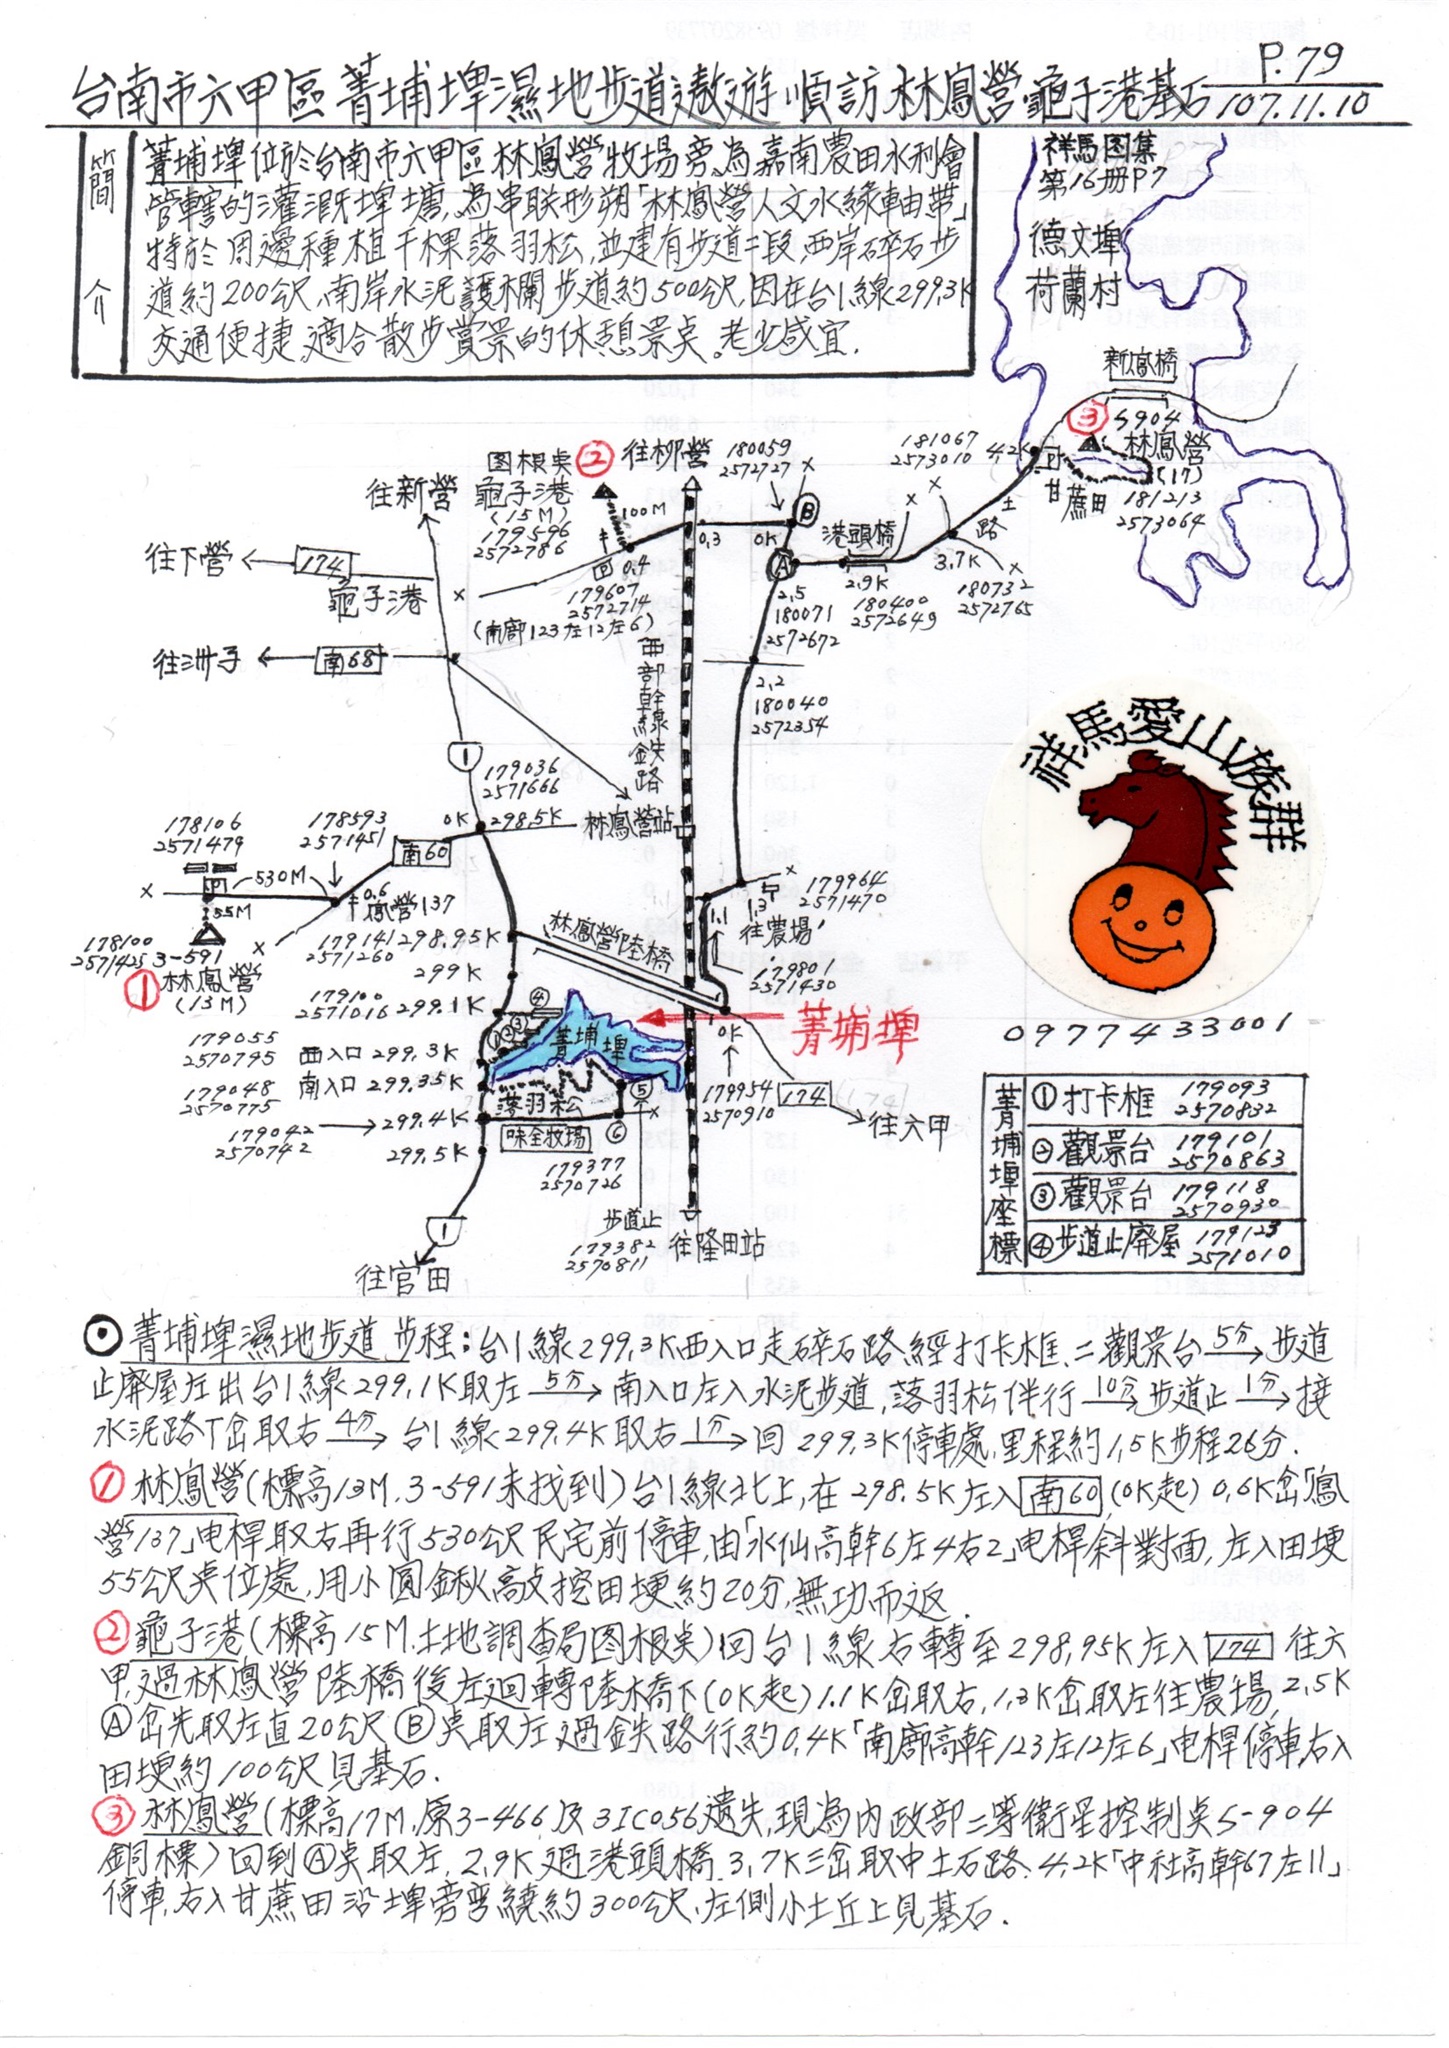 P.79
台南市六甲區菁埔埤濕地步道遨遊.順訪林鳳營.龜子港基石
107.11.10
簡介
菁埔埤位於台南市六甲區林鳳營牧場旁,為嘉南農田水利會
管轄的灌溉埤塘,為串联形朔「林鳳營人文水綠軸带」
特於周邊種植千棵落羽松,並建有步道二段,西岸碎石步
道約200公尺,南岸水泥護欄步道約500公尺,因在台1線299.3K
交通便捷,適合散步賞景的休憩景点。老少咸宜.
祥馬图集
第16册P7
德文埤
荷蘭村
新鳳橋
③
S904
林鳳營
(17)
181213
2573064
4.2K
P
甘蔗田
181067
2573010
土
路
3.7K
180732
2572765
港頭橋
2.9K
180400
2572649
180059
2572727
B
0K
0.3
A
2.5
180071
2572672
2.2
180040
2572354
往柳營
图根点
②
龜子港
(15M)
179596
2572786
100M
0.4
179607
2572714
(南廍123左12左6)
往新營
往下營
174
龜子港
往洲子
南68
西部幹線鉄路
1
179036
2571666
0K
298.5K
林鳳營站
178106
2571479
178593
2571451
南60
530M
P
55M
0.6
鳳營137
178100
2571425
3-591
① 林鳳營
(13M)
179141
2571260
298.95K
299K
179100
2571016
299.1K
179055
2570795
西入口 299.3K
179048
2570775
南入口 299.35K
179042
2570742
299.4K
299.5K
林鳳營陸橋
1.1
1.3
往農場
179964
2571470
179801
2571430
0K
179954
2570910
174
往六甲
菁埔埤
①②③④
菁埔埤
落羽松
味全牧場
⑤
⑥
179377
2570726
步道止
179382
2570811
往隆田站
1
往官田
祥馬愛山族群
0977433001
菁埔埤座標
①打卡框 179093 2570832
②觀景台 179101 2570863
③觀景台 179118 2570930
④步道止廢屋 179123 2571010
⊙菁埔埤濕地步道步程:台1線299.3K西入口走碎石路經打卡框、二觀景台 5分→ 步道
止廢屋左出台1線299.1K取左 5分→ 南入口左入水泥步道,落羽松伴行 10分→ 步道止 1分→ 接
水泥路T岔取右 4分→ 台1線299.4K取右 1分→ 回299.3K停車處,里程約1.5K步程26分.
①林鳳營(標高13M.3-591未找到)台1線北上,在298.5K左入南60(0K起)0.6K岔「鳳
營137」电桿取右再行530公尺民宅前停車,由「水仙高幹6左4右2」电桿斜對面,左入田埂
55公尺点位處,用小圓鍬敲挖田埂約20分,無功而返.
②龜子港(標高15M.土地調查局图根点)回台1線右轉至298.95K左入174往六
甲,過林鳳營陸橋後左迴轉陸橋下(0K起)1.1K岔取右,1.3K岔取左往農場,2.5K
Ⓐ岔先取左直20公尺Ⓑ点取左過鉄路行約0.4K「南廍高幹123左12左6」电桿停車,右入
田埂約100公尺見基石.
③林鳳營(標高17M,原3-466及3IC056遺失,現為內政部二等衛星控制点S-904
銅標)回到Ⓐ点取左,2.9K過港頭橋,3.7K三岔取中土石路,4.2K「中社高幹67左11」
停車,右入甘蔗田沿埤旁彎繞約300公尺,左側小土丘上見基石.